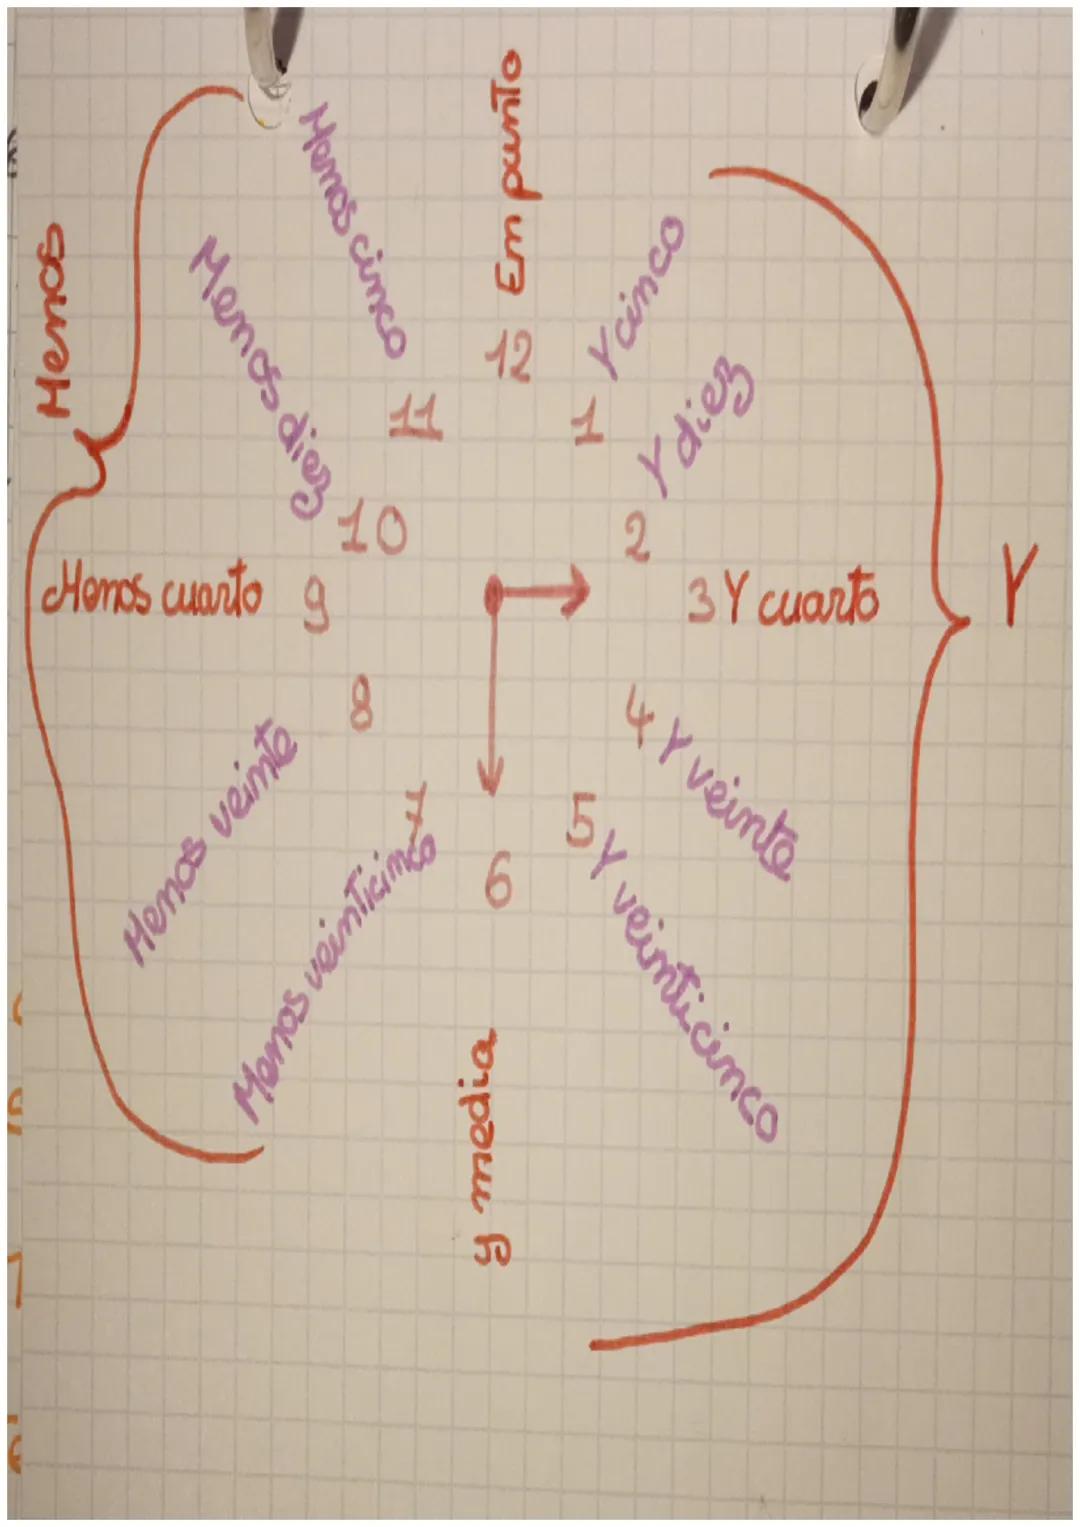 Menos
Menos cinco
En punto
Menos diez
Y cinco
12
11
1
Y diez
10
2
Menos cuarto
9
3 Y cuarto
Y
8
4 Y veinte
Menos veinte
7
5 Y veinticinco
Menos veinticinco
6
y media